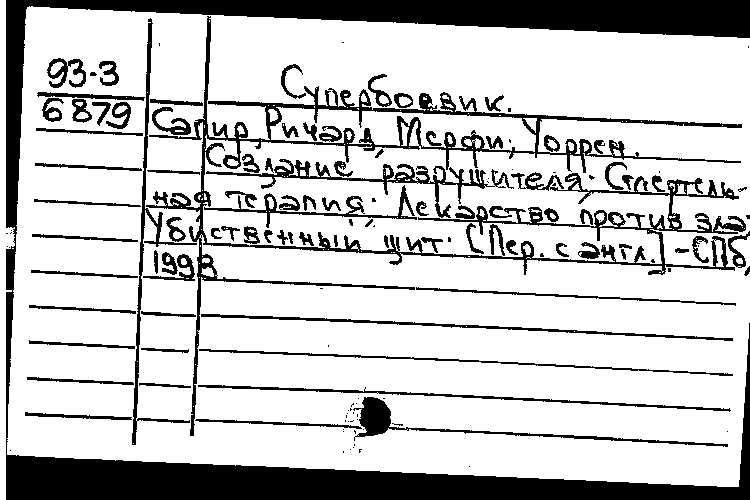 93-3
6879
Супербоевик.
Сапир, Ричард, Мерфи, Уоррен.
Создание разрушителя; Смертель-
ная терапия; Лекарство против зла;
Убийственный щит. [Пер. с англ.] - СПб,
1993.